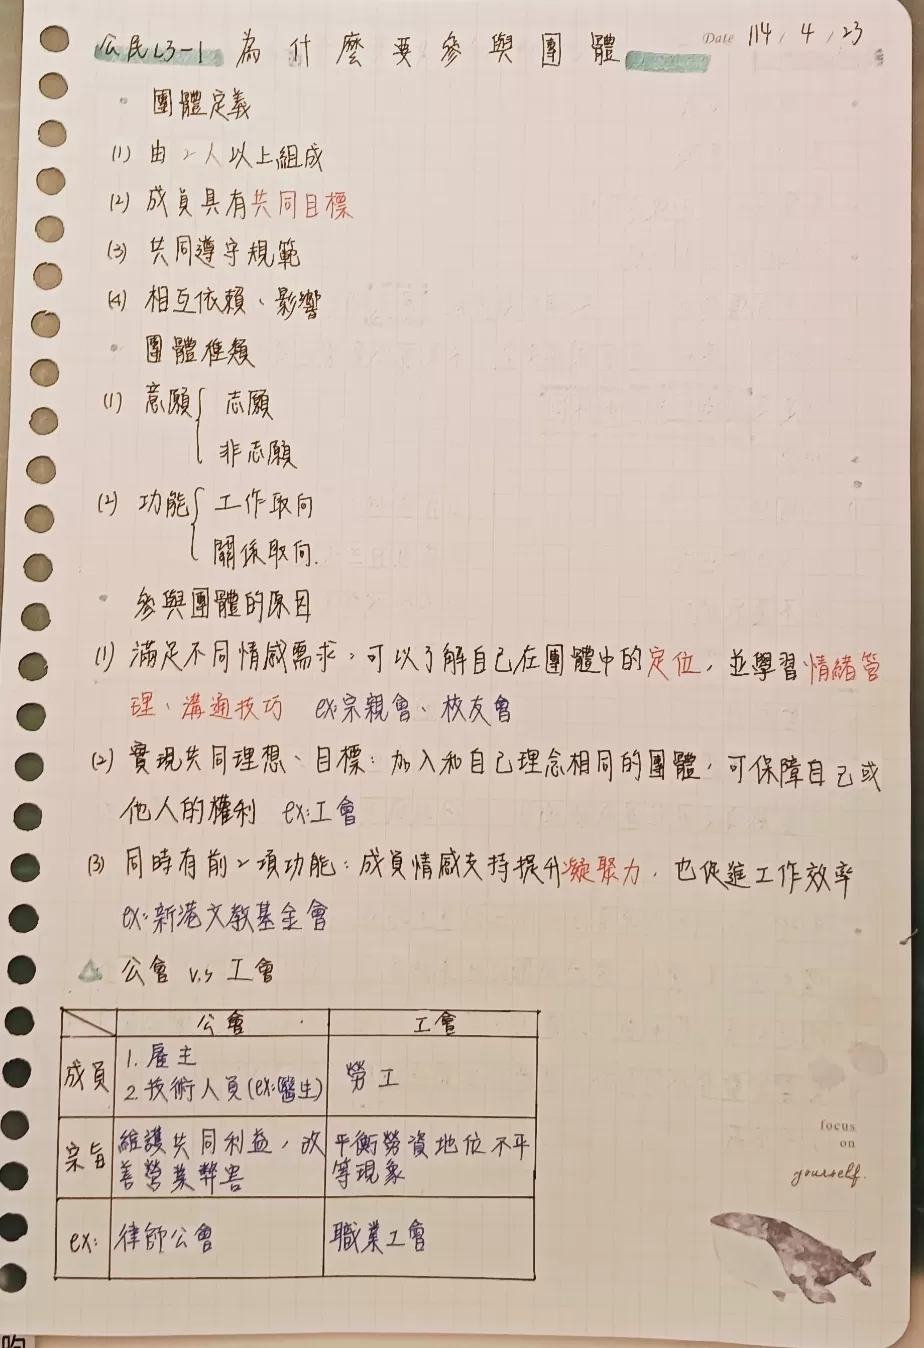 公民L3-1 為什麼要參與團體 Date 114 / 4 / 23
• 團體定義
(1) 由2人以上組成
(2) 成員具有共同目標
(3) 共同遵守規範
(4) 相互依賴、影響
• 團體種類
(1) 意願{ 志願
非志願
(2) 功能{ 工作取向
關係取向.
• 參與團體的原因
(1) 滿足不同情感需求，可以了解自己在團體中的定位，並學習情緒管
理、溝通技巧 ex:宗親會、校友會
(2) 實現共同理想、目標：加入和自己理念相同的團體，可保障自己或
他人的權利 ex:工會
(3) 同時有前2項功能：成員情感支持提升凝聚力，也促進工作效率
ex:新港文教基金會
△ 公會 v.s 工會
公會 工會
成員 1. 雇主
2. 技術人員(ex:醫生) 勞工
宗旨 維護共同利益，改
善營業弊害 平衡勞資地位不平
等現象
ex: 律師公會 職業工會
focus
on
yourself.